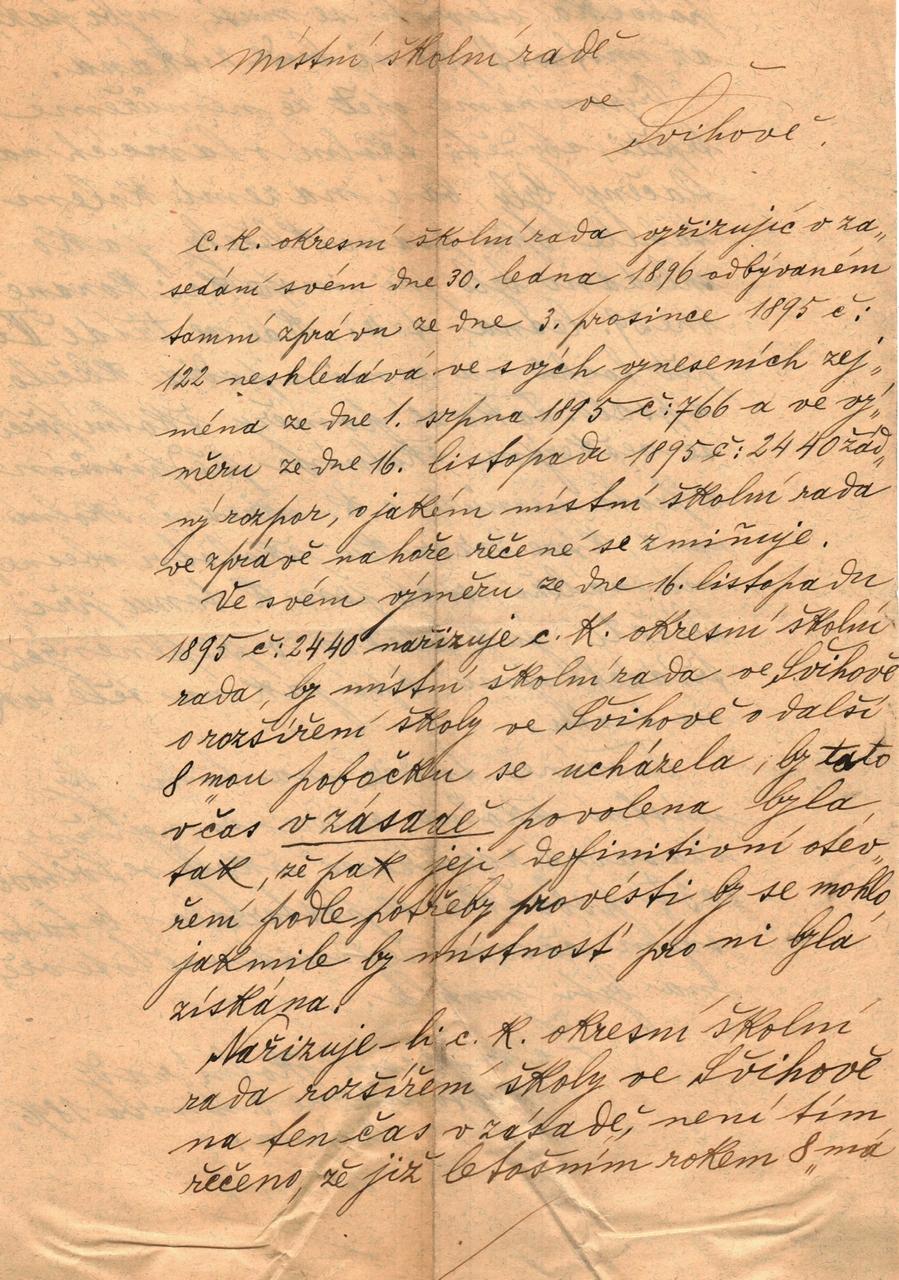 Místní školní radě
ve
Švihově.
C. K. okresní školní rada vyřizujíc v za„
sedání svém dne 30. ledna 1896 odbývaném
tamní zprávu ze dne 3. prosince 1895 č:
122 neshledává ve svých vyneseních zej„
ména ze dne 1. srpna 1895 č: 766 a ve vý„
měru ze dne 16. listopadu 1895 č: 2440 žád„
ný rozpor, o jakém místní školní rada
ve zprávě nahoře řěčené se zmiňuje.
Ve svém výměru ze dne 16. listopadu
1895 č: 2440 nařizuje c. K. okresní školní
rada, by místní školní rada ve Švihově
o rozšíření školy ve Švihově o další
8„mou pobočku se ucházela, by tato
včas v zásadě povolena byla
tak, zě pak její definitivní otev„
ření podle potřeby provésti by se mohlo,
jakmile by místnost pro ni byla
získána.
Nařizuje-li c. K. okresní školní
rada rozšíření školy ve Švihově
na ten čas v zásadě, není tím
řečeno, zě již letošním rokem 8„má